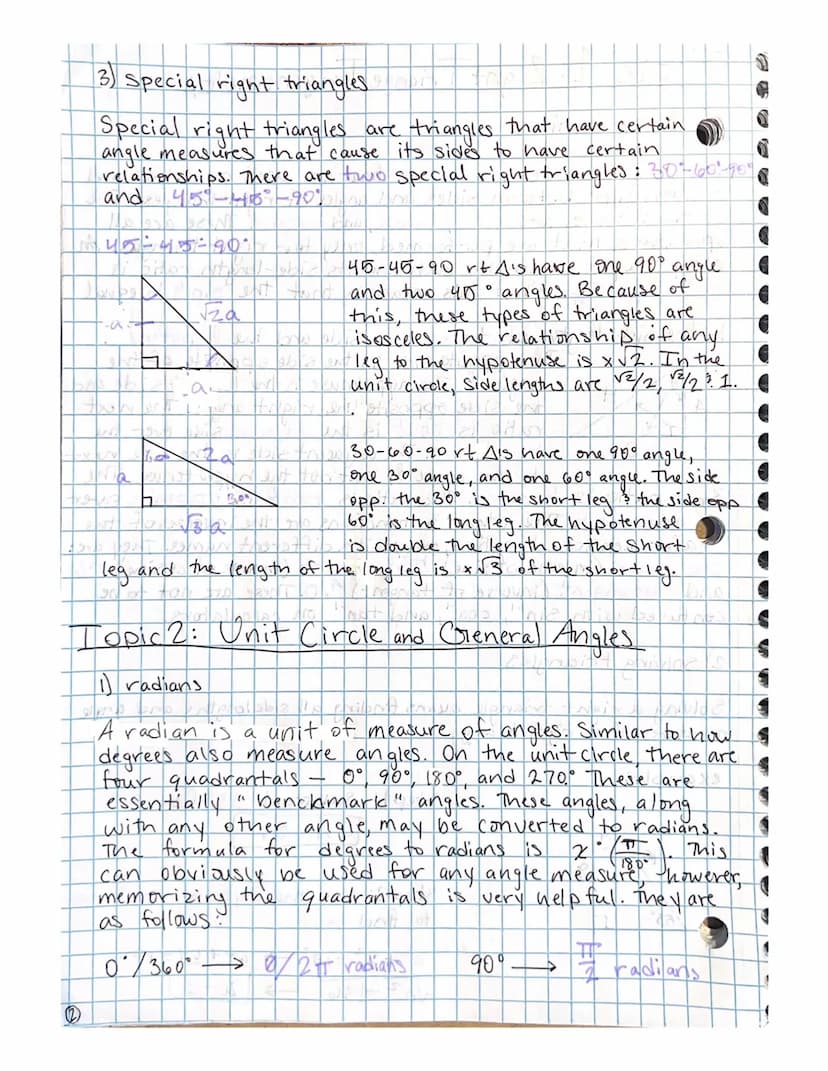 3) Special right triangles
Special right triangles are triangles that have certain
angle measures that cause its sides to have certain
relationships. There are two special right triangles: 30°-60°-90°
and 45°-45°-90°.
45°-45°-90°
45-45-90 rt Δ's have one 90° angle
and two 45° angles. Because of
this, these types of triangles are
isosceles. The relationship of any
leg to the hypotenuse is x√2. In the
unit circle, side lengths are √2/2, √2/2 & 1.
a
√2a
a
30-60-90 rt Δ's have one 90° angle,
one 30° angle, and one 60° angle. The side
opp. the 30° is the short leg & the side opp
60° is the long leg. The hypotenuse
is double the length of the short
leg and the length of the long leg is x√3 of the short leg.
60°
2a
a
30°
√3a
Topic 2: Unit Circle and General Angles
1) radians
A radian is a unit of measure of angles. Similar to how
degrees also measure angles. On the unit circle, there are
four quadrantals – 0°, 90°, 180°, and 270°. These are
essentially "benckmark" angles. These angles, along
with any other angle, may be converted to radians.
The formula for degrees to radians is x·(π/180°). This
can obviously be used for any angle measure, however,
memorizing the quadrantals is very helpful. They are
as follows:
0°/360° → 0/2π radians 90° → π/2 radians
2